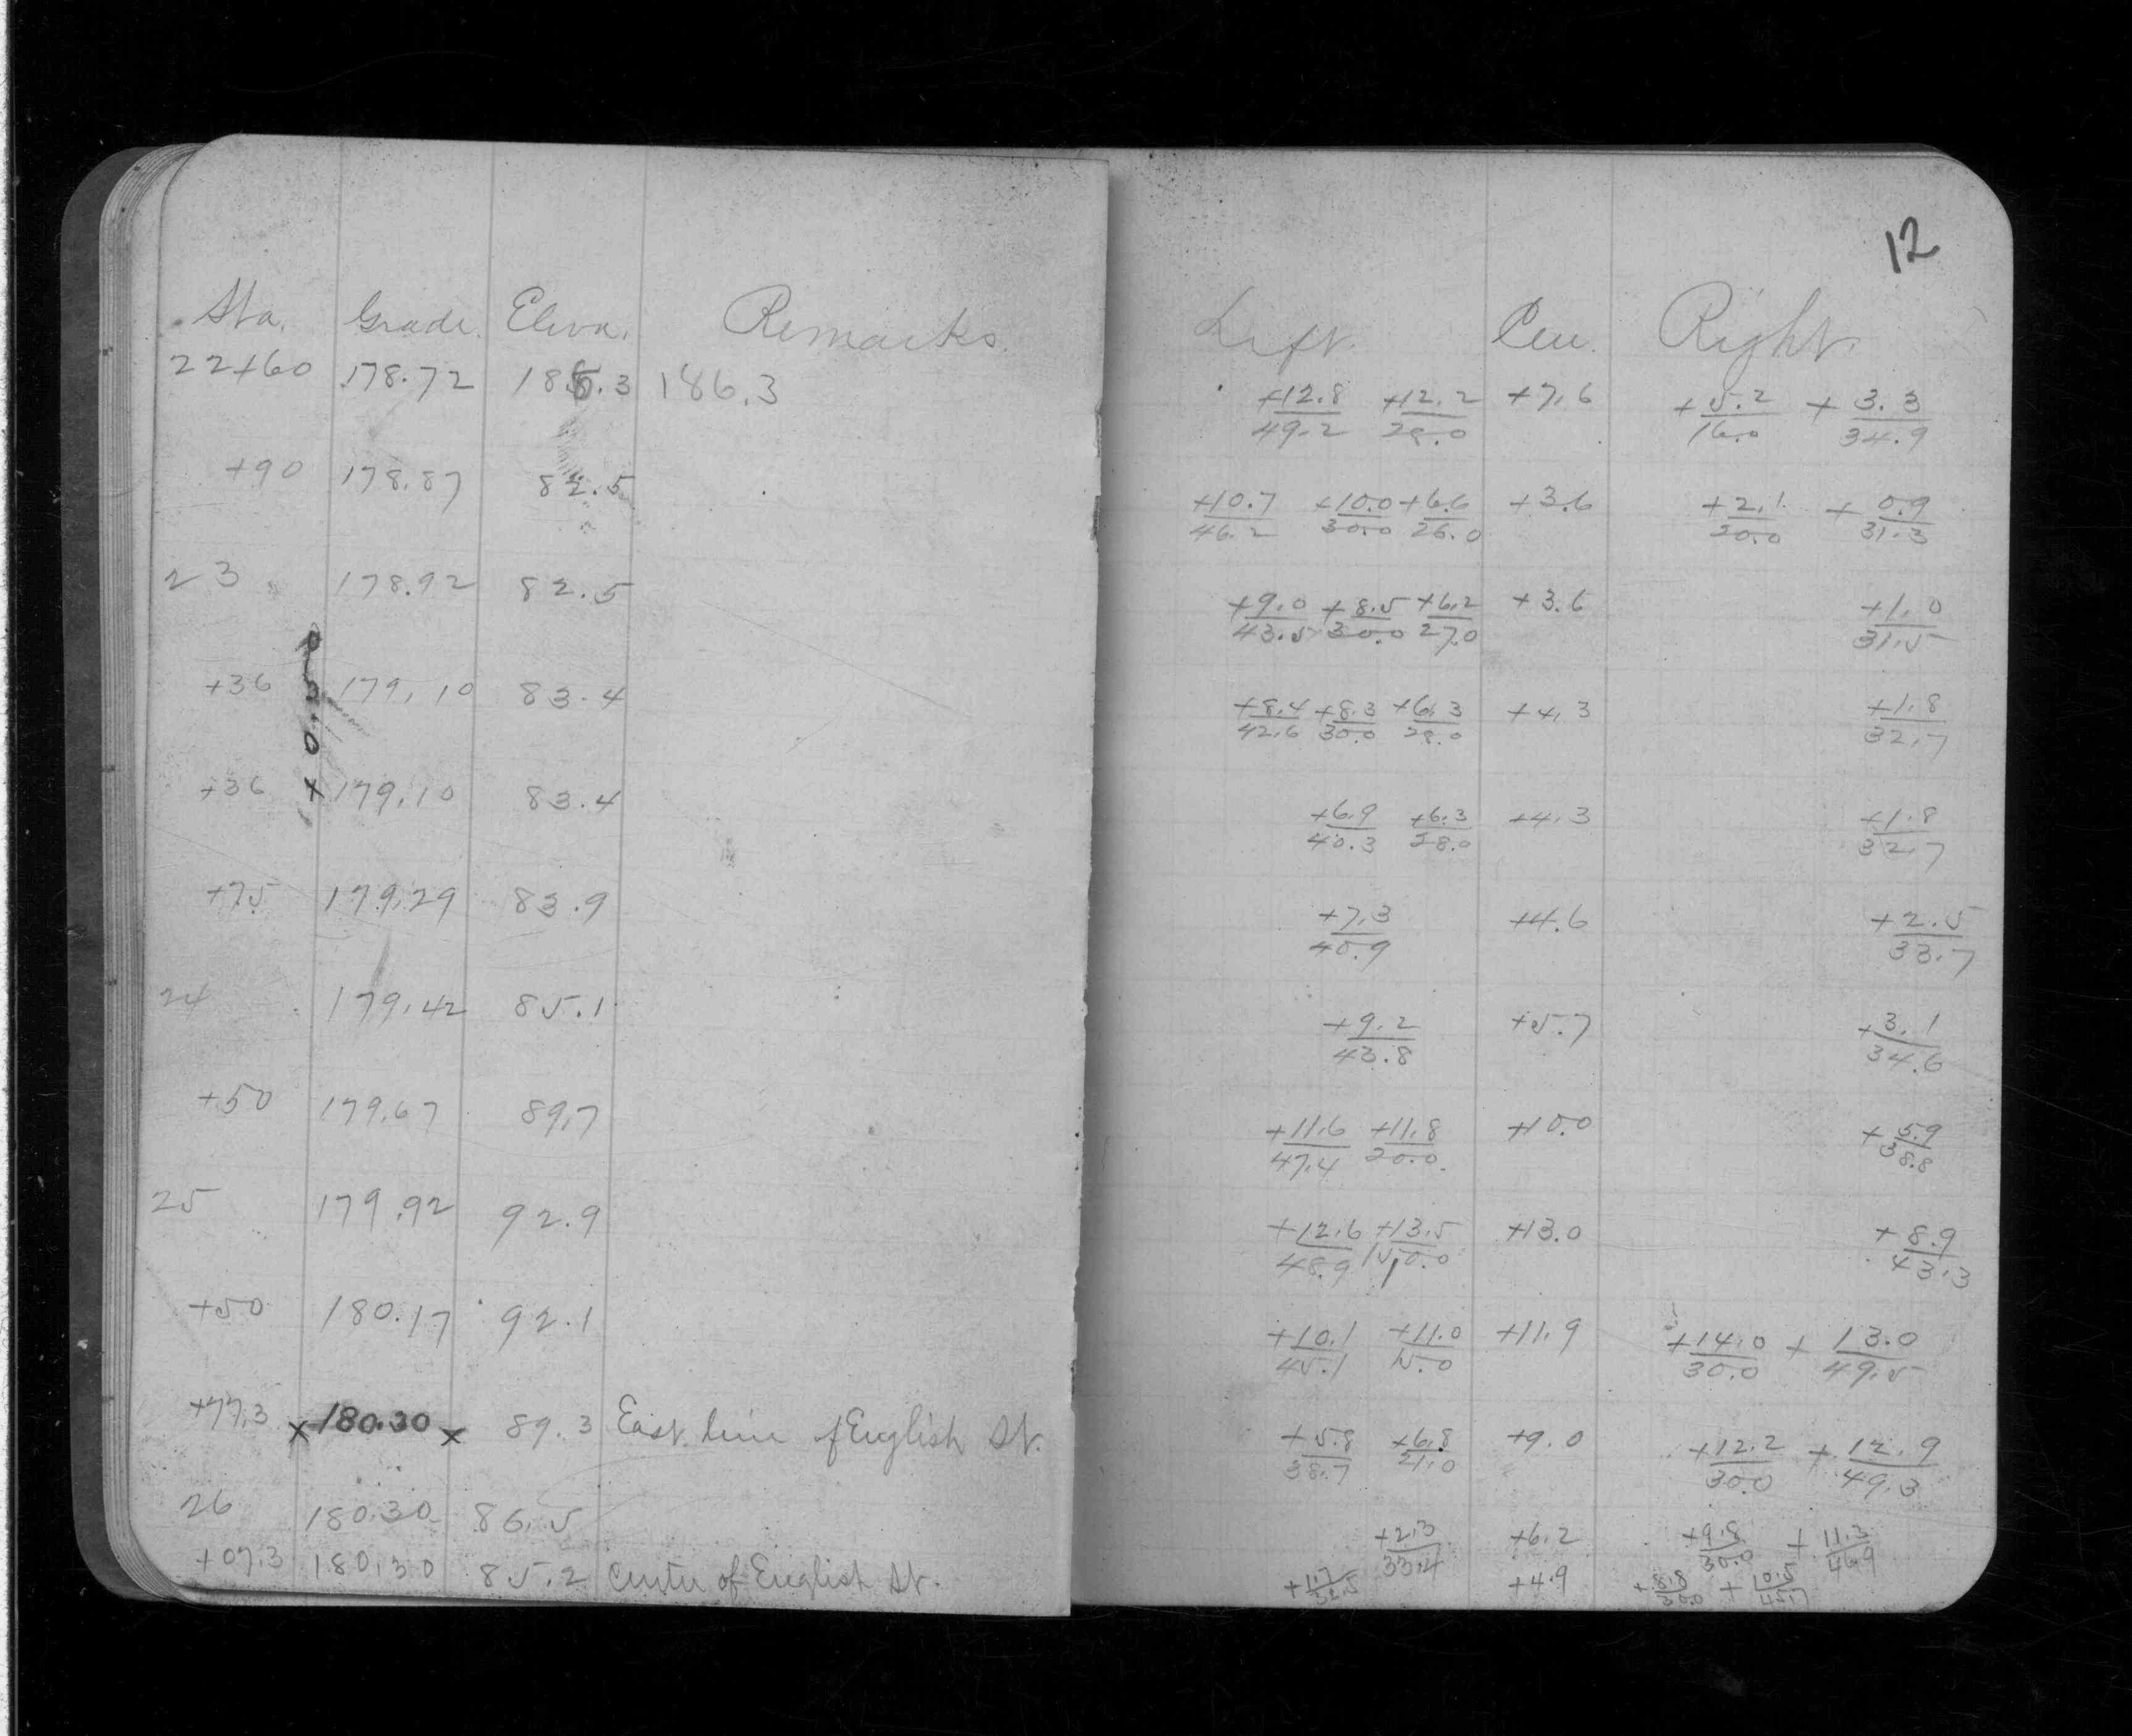 12
Sta. Grade. Eleva. Remarks.
22+60 178.72 186.3 186.3
+90 178.87 82.5
23 178.92 82.5
+36 179.10 83.4
+36 x 179.10 83.4
+75 179.29 83.9
24 179.42 85.1
+50 179.67 89.7
25 179.92 92.9
+50 180.17 92.1
+77.3 x 180.30 x 89.3 East line of English St.
26 180.30 86.5
+07.3 180.30 85.2 Center of English St.
Left. Cen. Right.
+12.8/49.2 +12.2/28.0 +7.6 +5.2/16.0 +3.3/34.9
+10.7/46.2 +10.0/30.0 +6.6/26.0 +3.6 +2.1/20.0 +0.9/31.3
+9.0/43.5 +8.5/30.0 +6.2/27.0 +3.6 +1.0/31.5
+8.4/42.6 +8.3/30.0 +6.3/28.0 +4.3 +1.8/32.7
+6.9/40.3 +6.3/28.0 +4.3 +1.8/32.7
+7.3/40.9 +4.6 +2.5/33.7
+9.2/43.8 +5.7 +3.1/34.6
+11.6/47.4 +11.8/20.0 +10.0 +5.9/38.8
+12.6/48.9 +13.5/15.0 +13.0 +8.9/43.3
+10.1/45.1 +11.0/15.0 +11.9 +14.0/30.0 +13.0/49.5
+5.8/38.7 +6.8/21.0 +9.0 +12.2/30.0 +12.9/49.3
+2.3/33.4 +6.2 +9.8/30.0 +11.3/46.9
+1.7/32.5 +4.9 +8.8/30.0